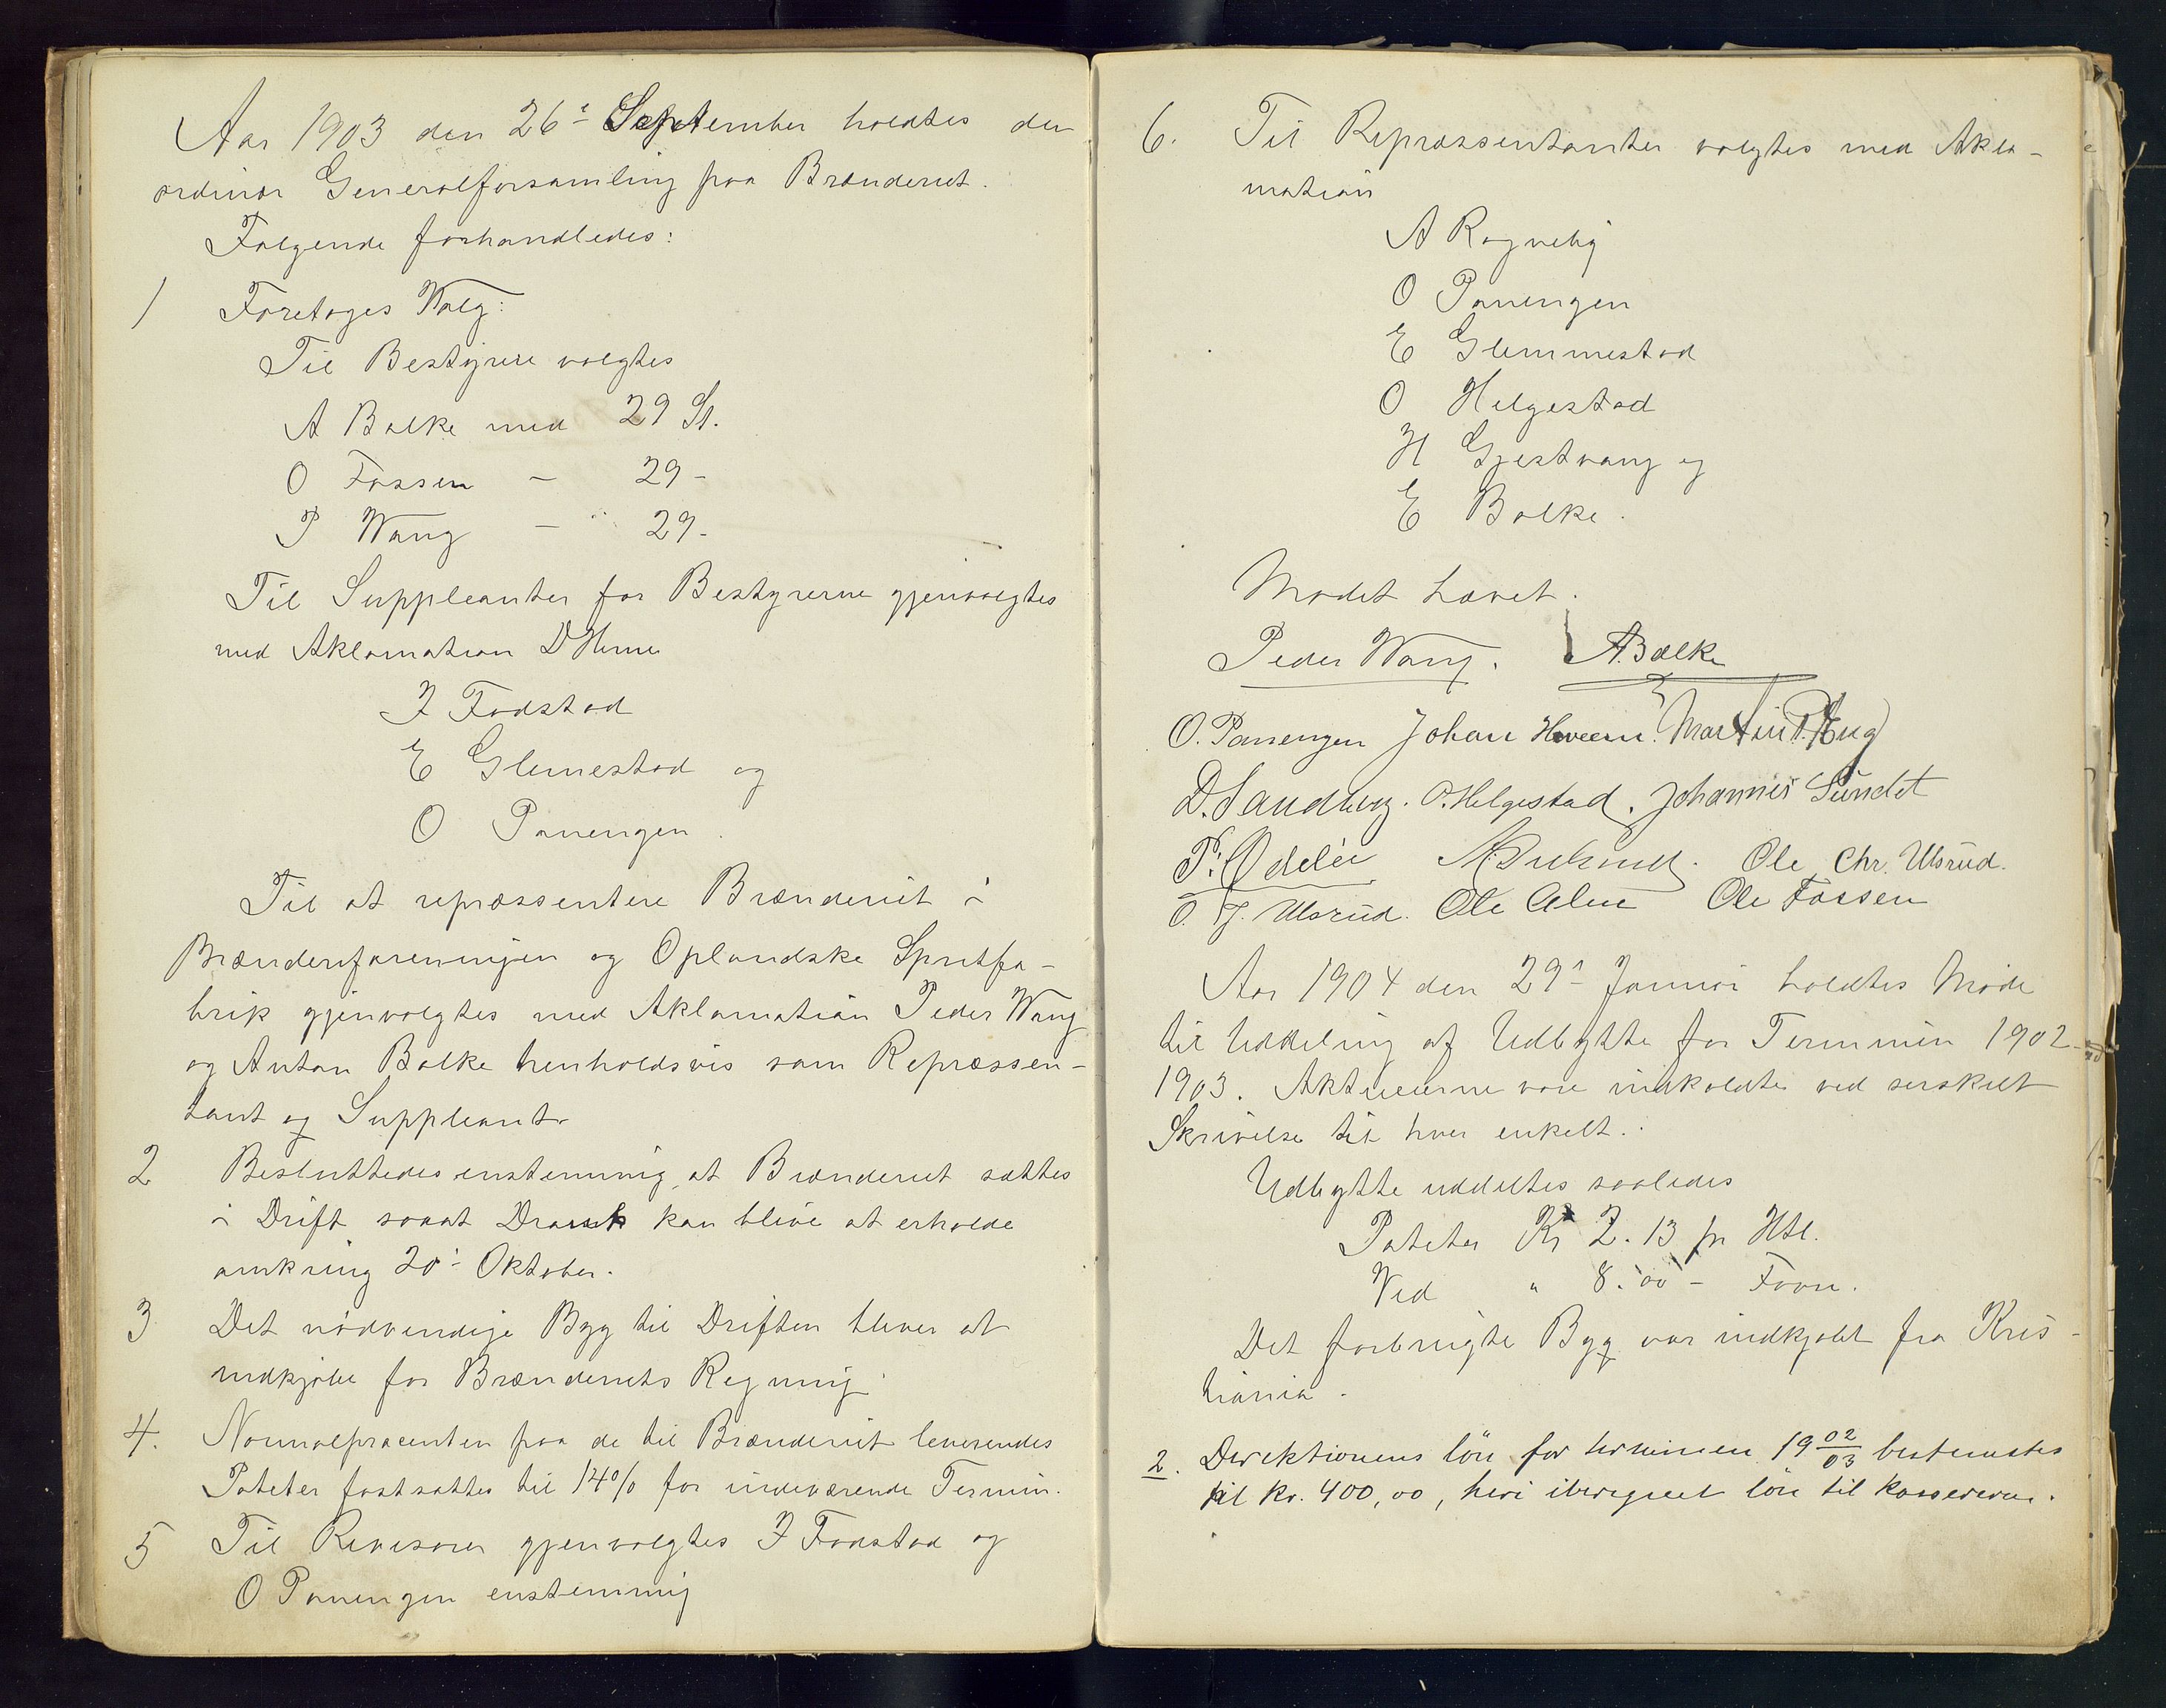 Aar 1903 den 26<sup>i</sup> September holdtes den
ordinær Generalforsamling paa Brænderiet.
Følgende forhandledes:
1 Foretoges Valg:
Til Bestyrere valgtes
A Balke med 29 St.
O Fossen – 29 –
P Wang – 29 –
Til Suppleanter for Bestyrerne gjenvalgtes
med Aklamation D Heme
J Fodstad
E Glemestad og
O Panengen.
Til at repræssentere Brænderiet i
Brænderiforeningen og Oplandske Spritfa-
brik gjenvalgtes med Aklamation Peder Wang
og Anton Balke henholdsvis som Repræssen-
tant og Suppleant.
2 Besluttedes enstemmig, at Brænderiet sættes
i Drift saaat Drank kan blive at erholde
omkring 20<sup>i</sup> Oktober.
3 Det nødvendige Byg til Driften bliver at
indkjøbe for Brænderiets Regning.
4. Normalprocenten paa de til Brænderiet leverendes
Poteter fastsattes til 14% for indeværende Termin.
5 Til Revisorer gjenvalgtes J Fodstad og
O Panengen enstemmig
6. Til Repræssentanter valgtes med Akla-
mation
A Rogneby
O Panengen
E Glemmestad
O Helgestad
H Gjestvang og
E Balke.
Mødet hævet.
Peder Wang. A. Balke
O. Panengen Johan Hveem. Martin P. Haug
D. Sandberg. O. Helgestad. Johannes Sundet
P. Ødelie Ole Chr. Ulsrud.
O. J. Ulsrud. Ole Alm Ole Fossen
Aar 1904 den 29<sup>i</sup> Januar holdtes Møde
til Uddeling af Udbytte for Terminen 1902-
1903. Aktieeierne vare indkaldte ved serskilt
Skrivelse til hver enkelt.
Udbytte uddeltes saaledes
Poteter Kr 2.13 pr Htl.
Ved " 8.00 – Favn.
Det forbrugte Byg var indkjøbt fra Kris-
tiania.
2. Direktionens løn for terminen 19 02/03 bestemtes
til kr. 400,00, heri iberegnet løn til kassereren.